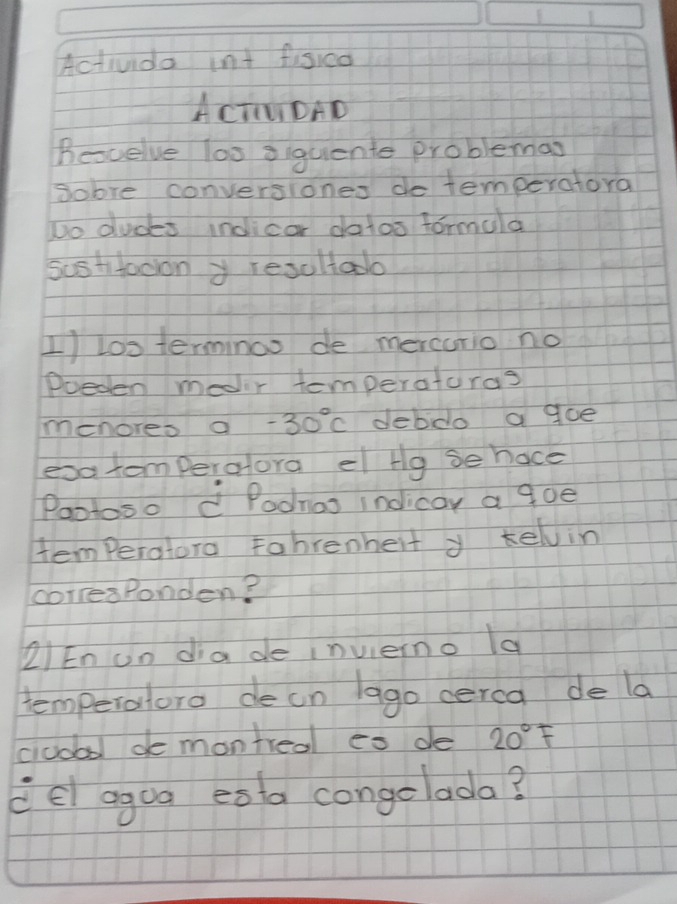 Activida int fisica
ACTIVIDAD
Rescuelve los siguente problemas
sobre conversiones de temperatora
indicar datos fórmula
sustitocion y resultado
1) los terminos de mercurio no
Poeden medir temperaturas
menores a -30°c debido a que
esa temperatora el Hg se hace
Pastoso ¿ Podrias indicar a que
temPeratora Fahrenheit y kelvin
corresPonden?
2) En un dia de invierno la
temperatora de un lago cerca de la
ciudad de montreal es de 20°F
¿ El agua esta congelada?